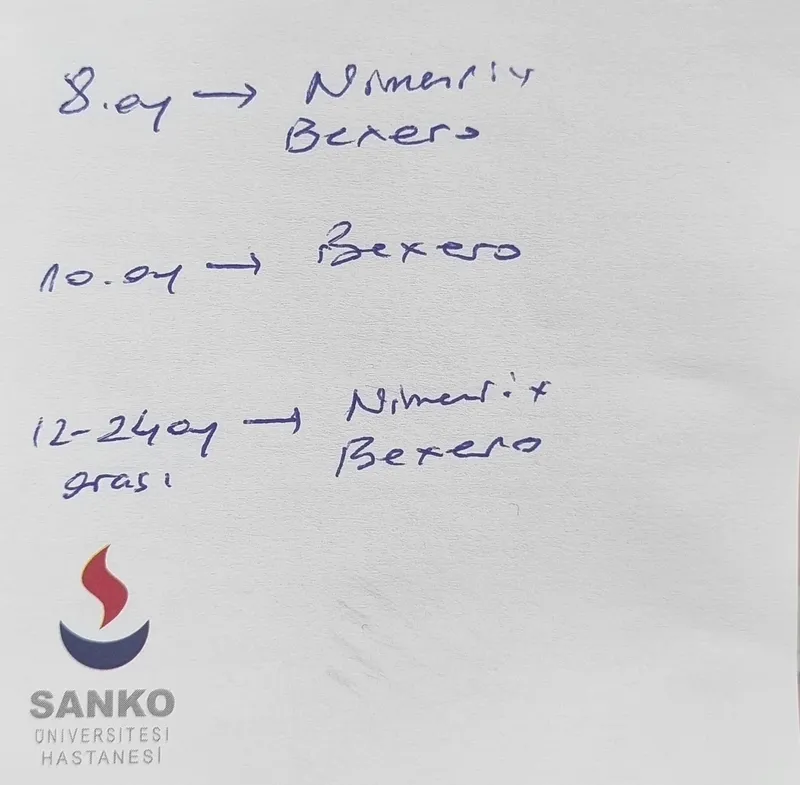 8.ay → Nimenrix
Bexero
10.ay → Bexero
12-24 ay → Nimenrix
arası Bexero
SANKO
ÜNİVERSİTESİ
HASTANESİ